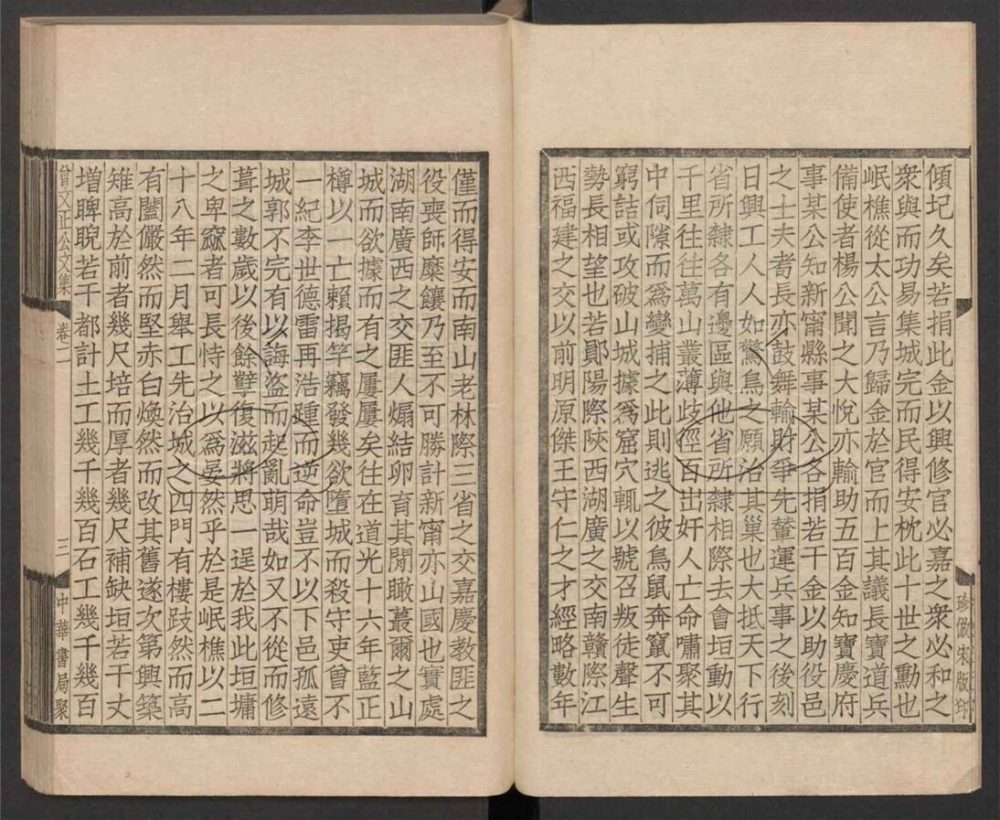 珍倣宋版印
傾圮久矣若捐此金以興修官必嘉之衆必和之
衆與而功易集城完而民得安枕此十世之勳也
岷樵從太公言乃歸金於官而上其議長寶道兵
備使者楊公聞之大悅亦輸助五百金知寶慶府
事某公知新甯縣事某公各捐若干金以助役邑
之士夫耆長亦鼓舞輸財爭先輦運兵事之後刻
日興工人人如驚鳥之願治其巢也大抵天下行
省所隸各有邊區與他省所隸相際去會垣動以
千里往往萬山叢薄歧徑百出奸人亡命嘯聚其
中伺隙而爲變捕之此則逃之彼鳥鼠奔竄不可
窮詰或攻破山城據爲窟穴輒以號召叛徒聲生
勢長相望也若鄖陽際陝西湖廣之交南贛際江
西福建之交以前明原傑王守仁之才經略數年
僅而得安而南山老林際三省之交嘉慶教匪之
役喪師糜饟乃至不可勝計新甯亦山國也實處
湖南廣西之交匪人煽結卵育其閒瞰蕞爾之山
城而欲據而有之屢屢矣往在道光十六年藍正
樽以一亡賴揭竿竊發幾欲墮城而殺守吏曾不
一紀李世德雷再浩踵而逆命豈不以下邑孤遠
城郭不完有以誨盜而起亂萌哉如又不從而修
葺之數歲以後餘孽復滋將思一逞於我此垣墉
之卑窳者可長恃之以爲晏然乎於是岷樵以二
十八年二月舉工先治城之四門有樓跂然而高
有闔儼然而堅赤白煥然而改其舊遂次第興築
雉高於前者幾尺培而厚者幾尺補缺垣若干丈
增睥睨若干都計土工幾千幾百石工幾千幾百
曾文正公文集 卷二 三 中華書局聚